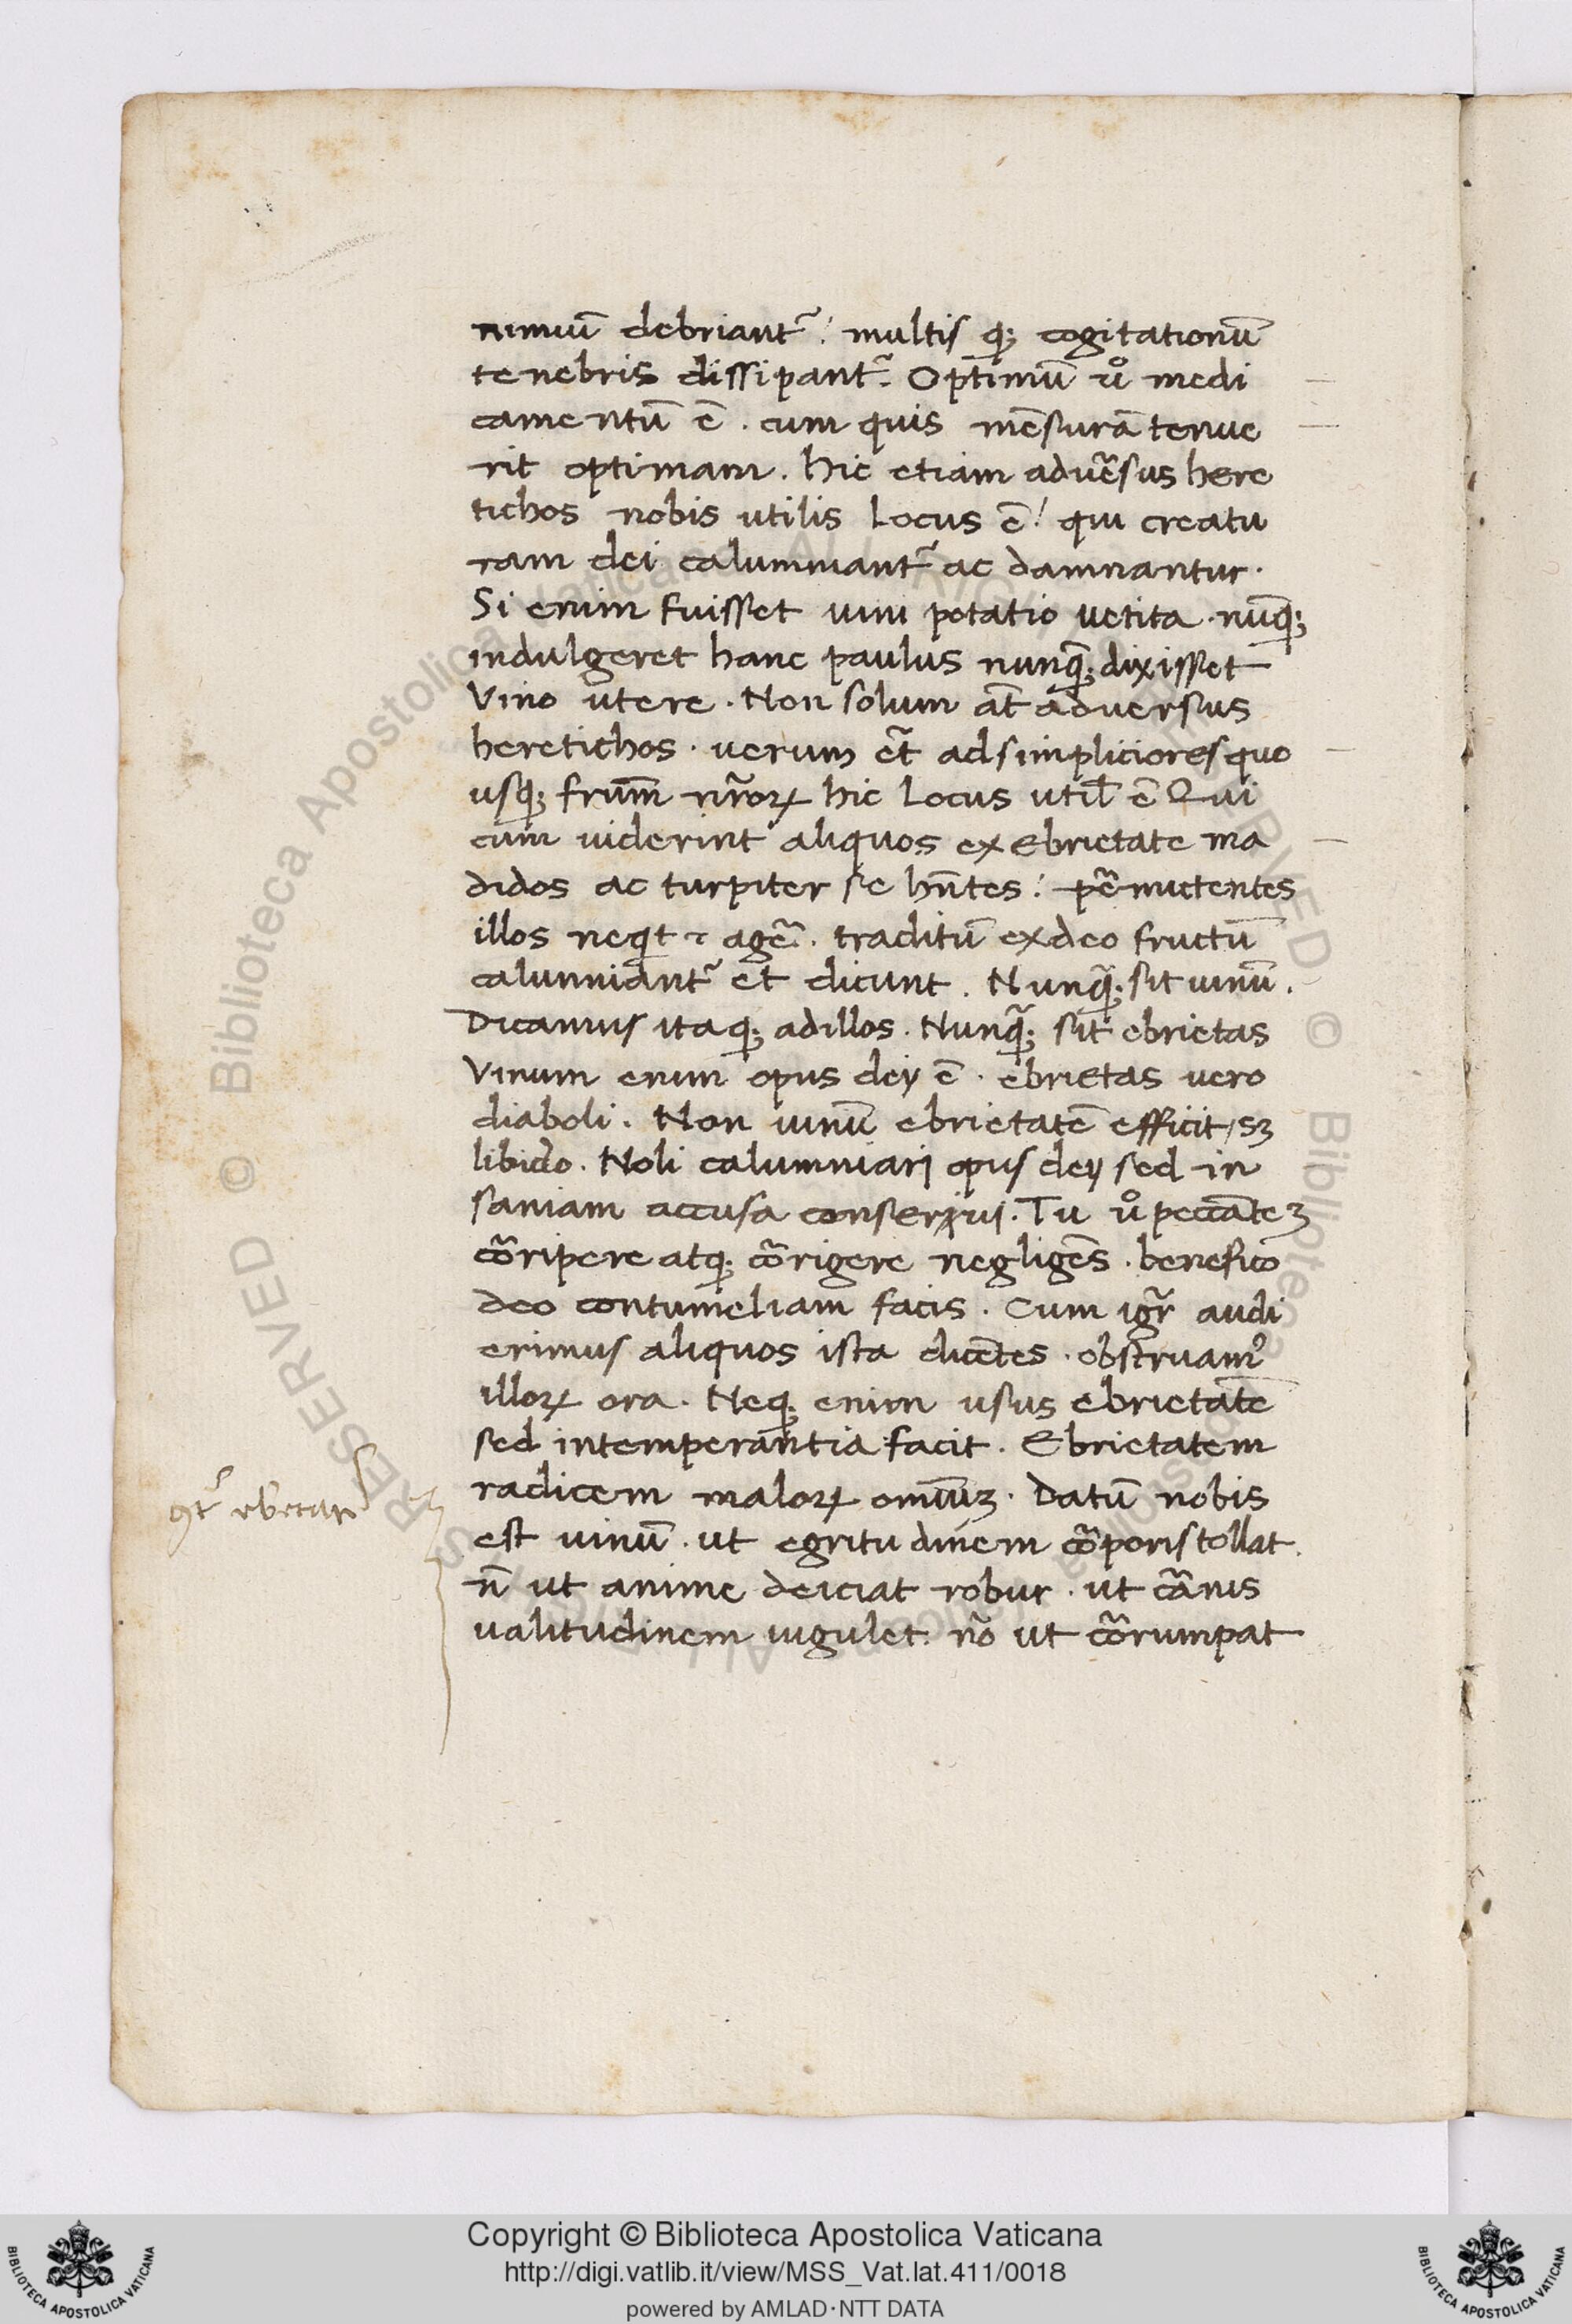 nimiū debriantʳ: multis qꝫ cogitationū
tenebris dissipantʳ. Optimū ůo medi
camentū ē. cum quis mēsurā tenue
rit optimam. hic etiam aduēsus here
tichos nobis utilis Locus ē: qui creatu
ram dei calumniantʳ ac damnantur.
Si enim fuisset uini potatio uetita. nūqꝫ
indulgeret hanc paulus nunqꝫ dixisset
Vino utere. Non solum āt aduersus
heretichos. uerum ēt ad simpliciores quo
usqꝫ frūm nr̄oꝝ hic Locus util̄ ē Qui
cum uiderint aliquos ex ebrietate ma
didos ac turpiter se hn̄tes: p̄mittentes
illos agē. traditū ex deo fructū
calunniantʳ et dicunt. Nunqꝫ sit uinū.
Dicamus itaqꝫ ad illos. Nunqꝫ sit ebrietas
Vinum enim opus dey ē. ebrietas uero
diaboli. Non uinū ebrietatē efficit, sꝫ
libido. Noli calumniari opus dey sed in
saniam accusa conserjui. Tu ůo peccāteꝫ
cōripere atqꝫ cōrigere negligēs. benefico
deo contumeliam facis. Cum igr̄ audi
erimus aliquos ista dicētes. obstruamꝰ
illoꝝ ora. Neqꝫ enim usus ebrietatē
sed intemperantia facit. Ebrietatem
radicem maloꝝ omniūꝫ. Datū nobis
est uinū. ut egritudinem cōporis tollat.
n̄ ut anime deiciat robur. ut cānis
ualitudinem iugulet. nō ut cōrumpat
Copyright © Biblioteca Apostolica Vaticana
http://digi.vatlib.it/view/MSS_Vat.lat.411/0018
powered by AMLAD·NTT DATA